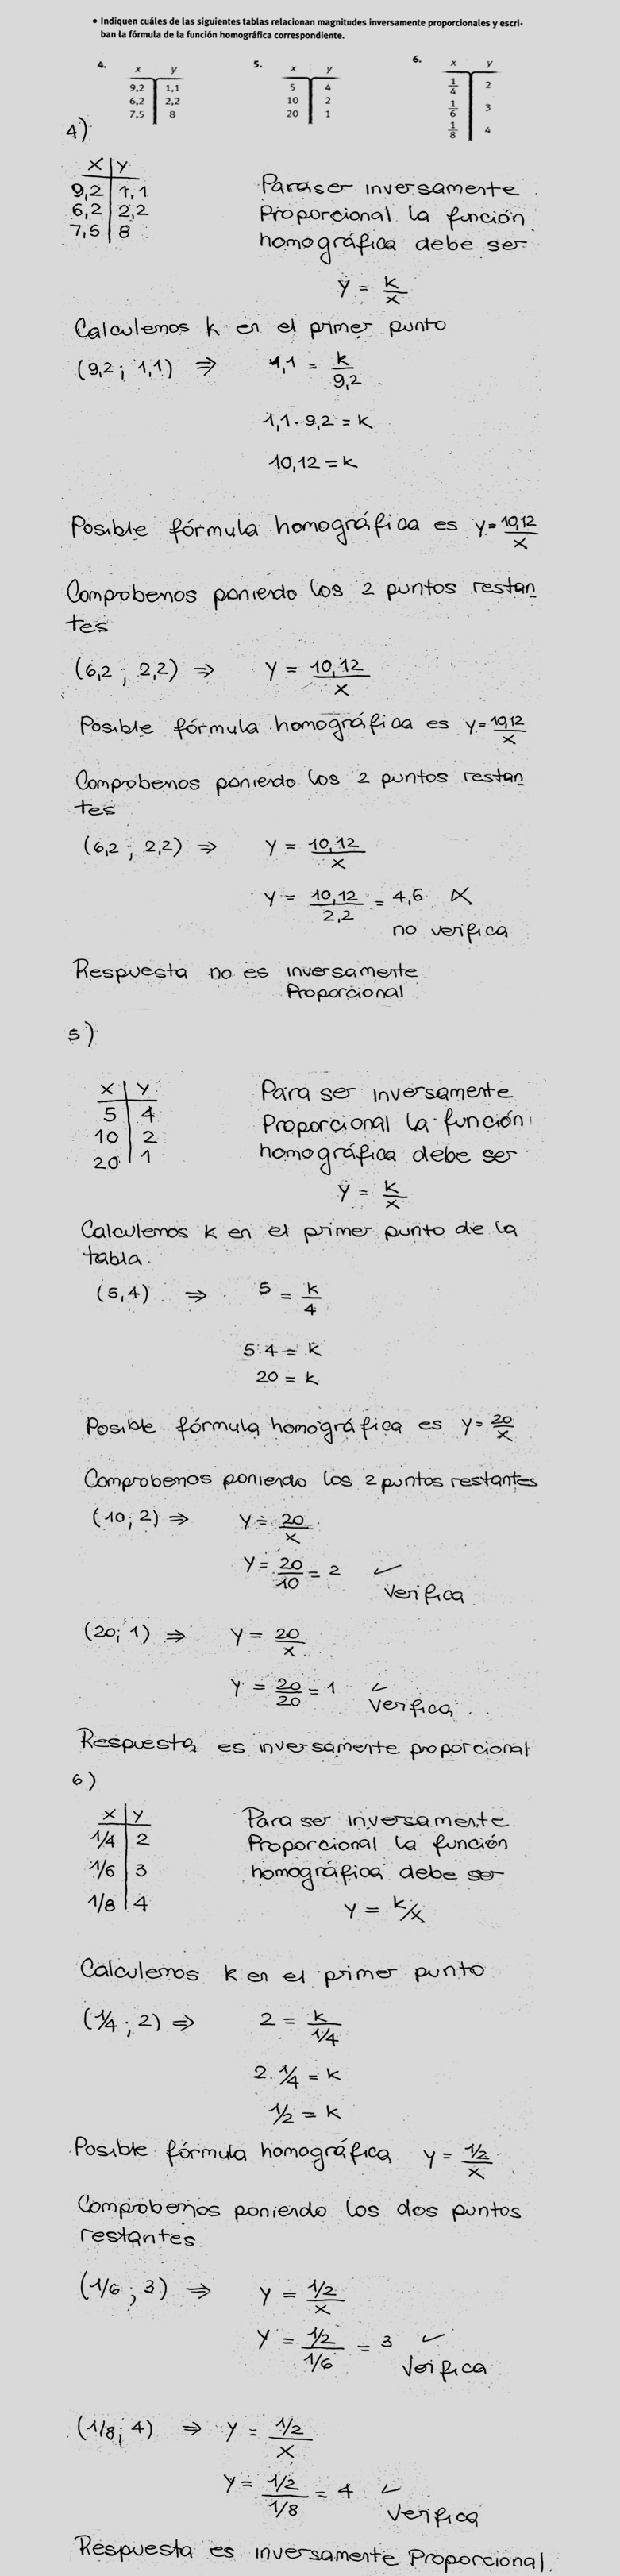 • Indiquen cuáles de las siguientes tablas relacionan magnitudes inversamente proporcionales y escri-
ban la fórmula de la función homográfica correspondiente.
4. x y
9,2 1,1
6,2 2,2
7,5 8
5. x y
5 4
10 2
20 1
6. x y
1/4 2
1/6 3
1/8 4
4)
X Y
9,2 1,1
6,2 2,2
7,5 8
Para ser inversamente
Proporcional la función
homográfica debe ser
Y = k/x
Calculemos k en el primer punto
(9,2 ; 1,1) ⇒ 1,1 = k/9,2
1,1 . 9,2 = k
10,12 = k
Posible fórmula homográfica es y = 10,12/x
Comprobenos poniendo los 2 puntos restan
tes
(6,2 ; 2,2) ⇒ y = 10,12/x
Posible fórmula homográfica es y = 10,12/x
Comprobenos poniendo los 2 puntos restan
tes
(6,2 ; 2,2) ⇒ y = 10,12/x
y = 10,12/2,2 = 4,6 X
no verifica
Respuesta no es inversamente
Proporcional
5)
X Y
5 4
10 2
20 1
Para ser inversamente
Proporcional la función
homográfica debe ser
Y = k/x
Calculemos k en el primer punto de la
tabla.
(5,4) ⇒ 5 = k/4
5.4 = k
20 = k
Posible fórmula homográfica es y = 20/x
Comprobemos poniendo los 2 puntos restantes
(10; 2) ⇒ y = 20/x
y = 20/10 = 2 ✓
Verifica
(20; 1) ⇒ y = 20/x
y = 20/20 = 1 ✓
Verifica
Respuesta es inversamente proporcional
6)
X Y
1/4 2
1/6 3
1/8 4
Para ser inversamente
Proporcional la función
homográfica debe ser
Y = k/x
Calculemos k en el primer punto
(1/4 ; 2) ⇒ 2 = k/1/4
2 . 1/4 = k
1/2 = k
Posible fórmula homográfica y = 1/2/x
Comprobemos poniendo los dos puntos
restantes
(1/6 ; 3) ⇒ y = 1/2/x
y = 1/2/1/6 = 3 ✓
Verifica
(1/8; 4) ⇒ y = 1/2/x
y = 1/2/1/8 = 4 ✓
Verifica
Respuesta es inversamente Proporcional.